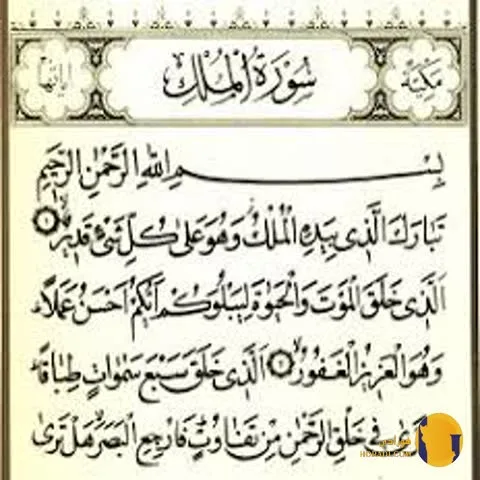 مكية سورة الملك اياتها
بسم الله الرحمن الرحيم
تبارك الذي بيده الملك وهو على كل شئ قدير ١
الذي خلق الموت والحيوة ليبلوكم ايكم احسن عملا
وهو العزيز الغفور ٢ الذي خلق سبع سموات طباقا
في خلق الرحمن من تفاوت فارجع البصر هل ترى